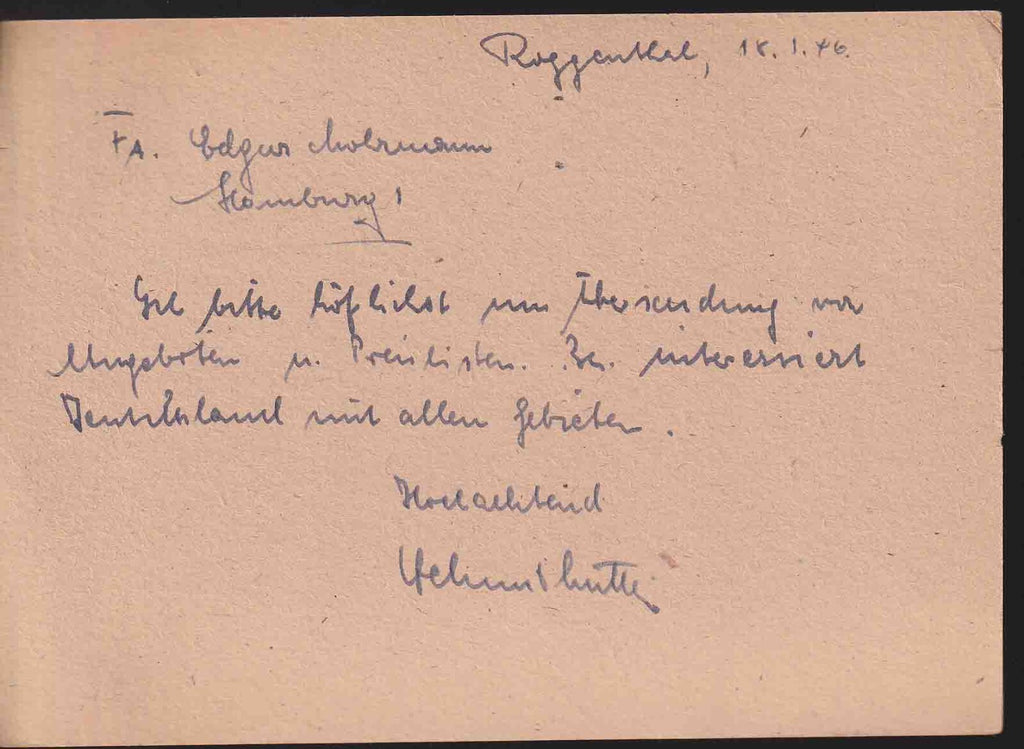 Roggenthal, 18.1.46.
FA. Edgar Mohrmann
Hamburg 1
bitte höflichst um Übersendung von
Angeboten u. Preislisten. Bs. interessiert
Deutschland mit allen Gebieten.
Hochachtend